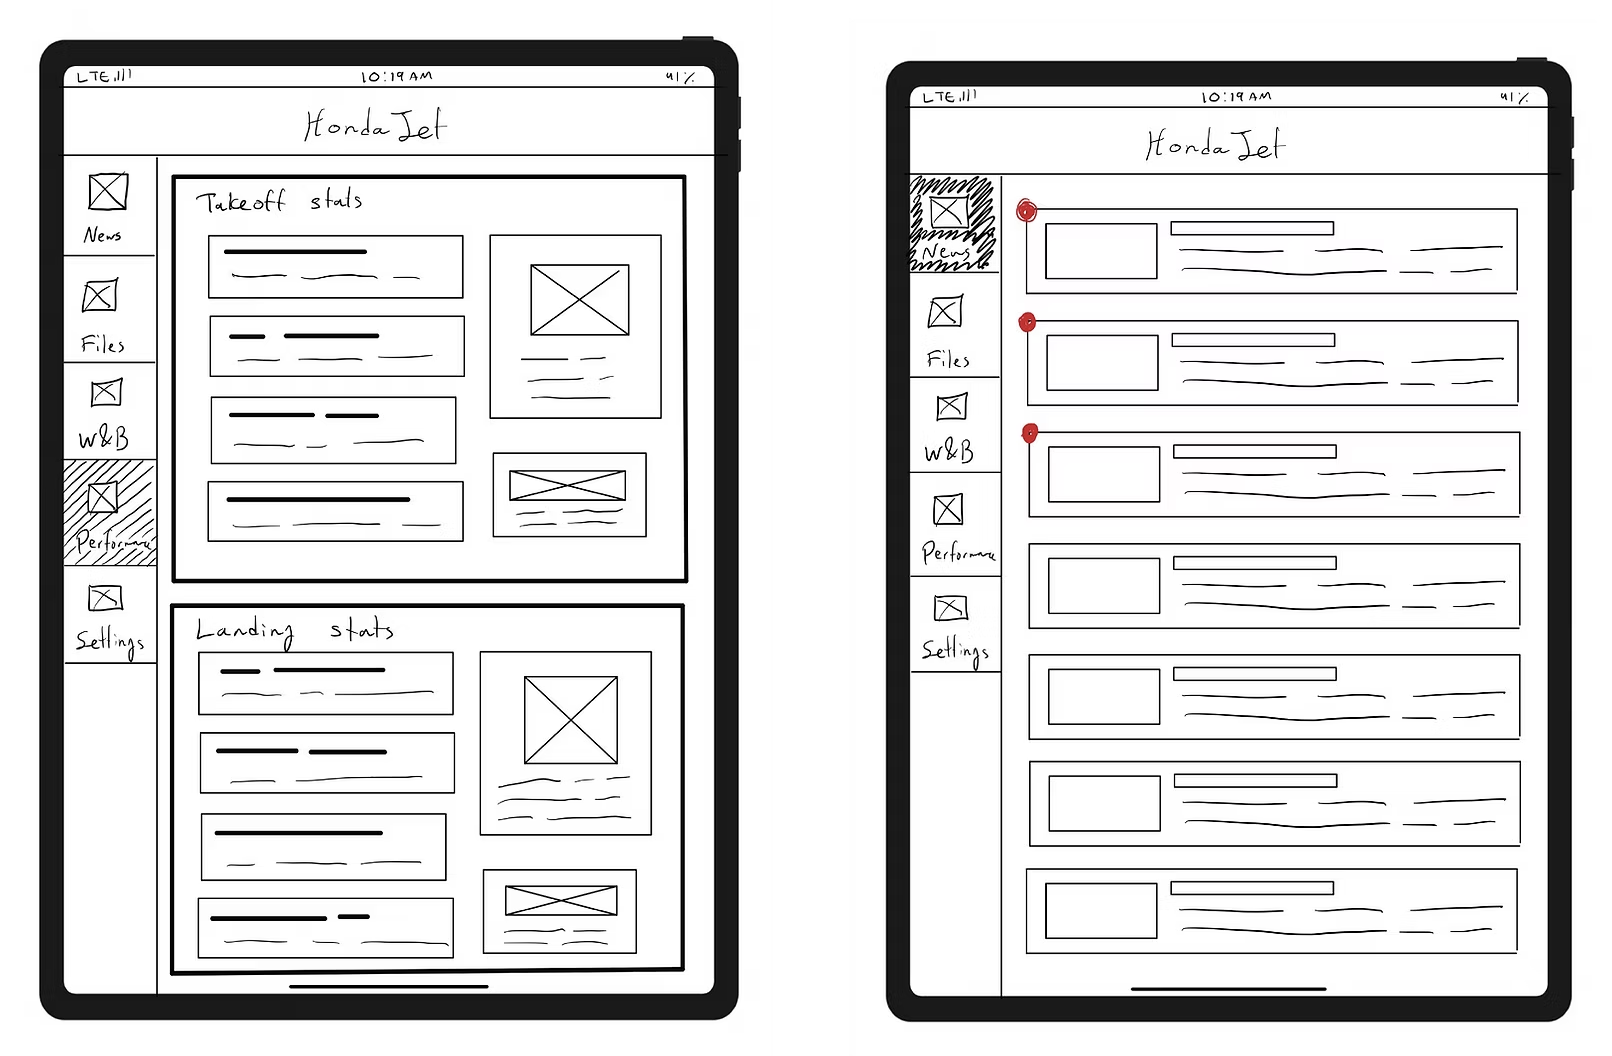 LTE 10:19 AM 41%
Honda Jet
News
Files
W&B
Performance
Settings
Takeoff stats
Landing stats
LTE 10:19 AM 41%
Honda Jet
News
Files
W&B
Performance
Settings